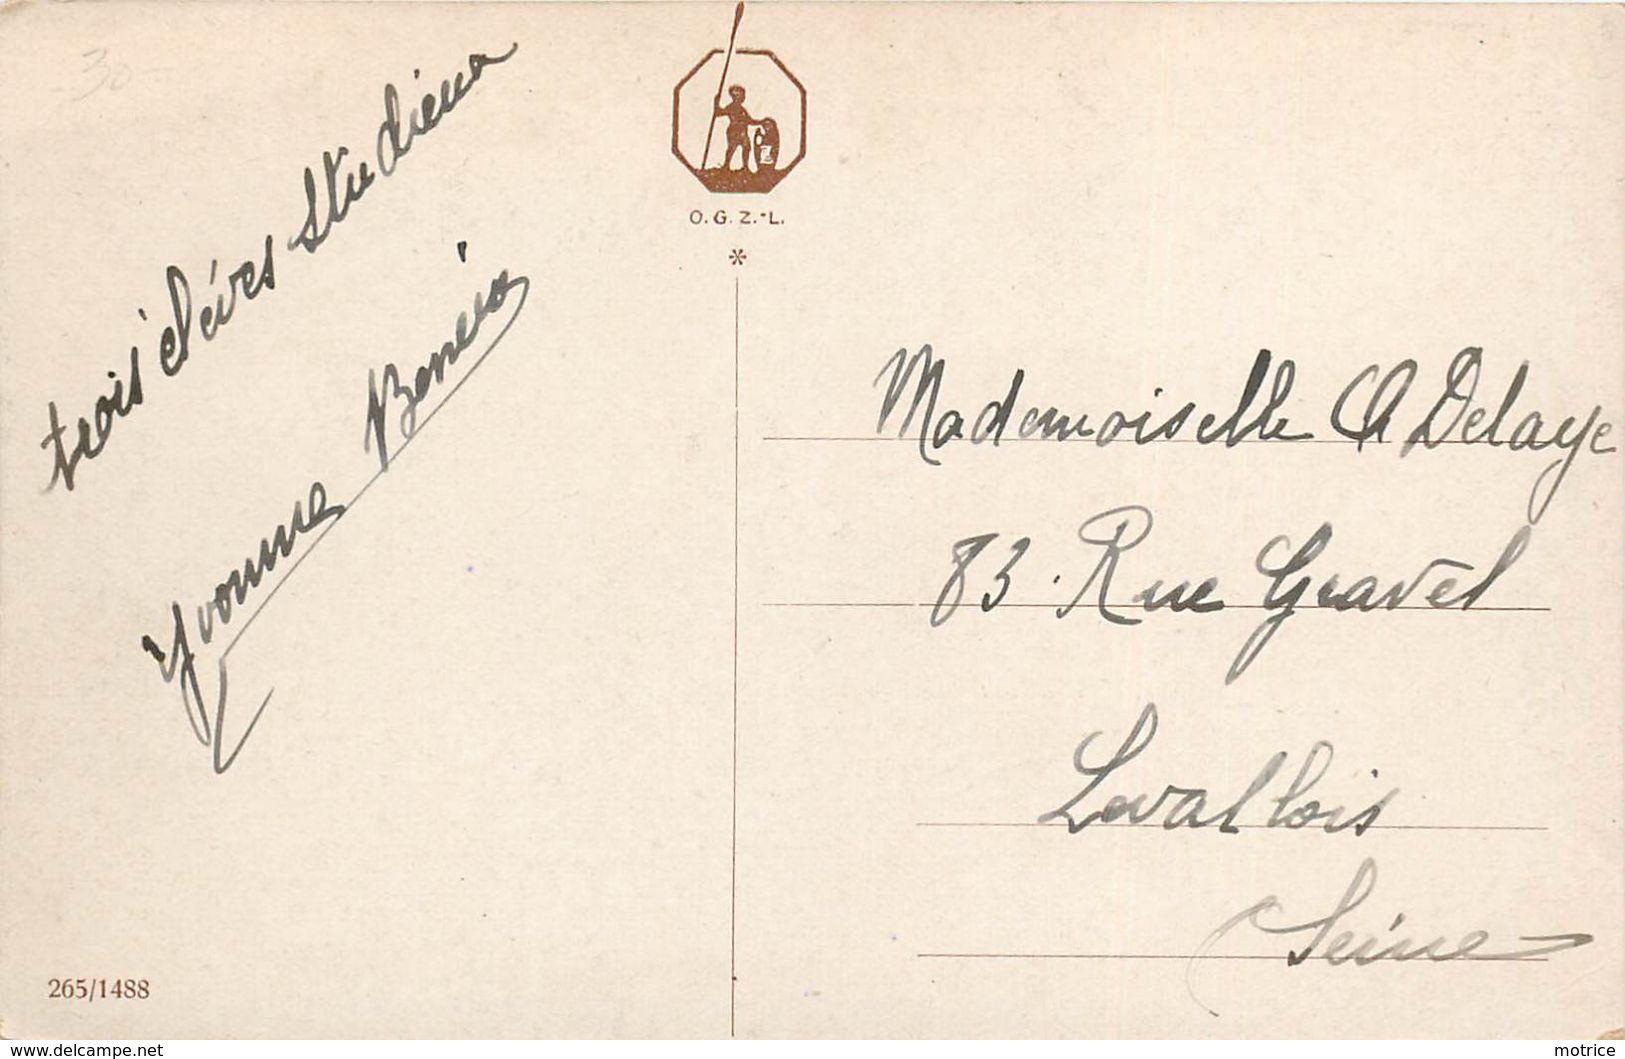 30
trois éléves studieux
Yvonne
O. G. Z.-L.
*
Mademoiselle A Delaye
83 Rue Gravel
Levallois
Seine
265/1488
www.delcampe.net
motrice